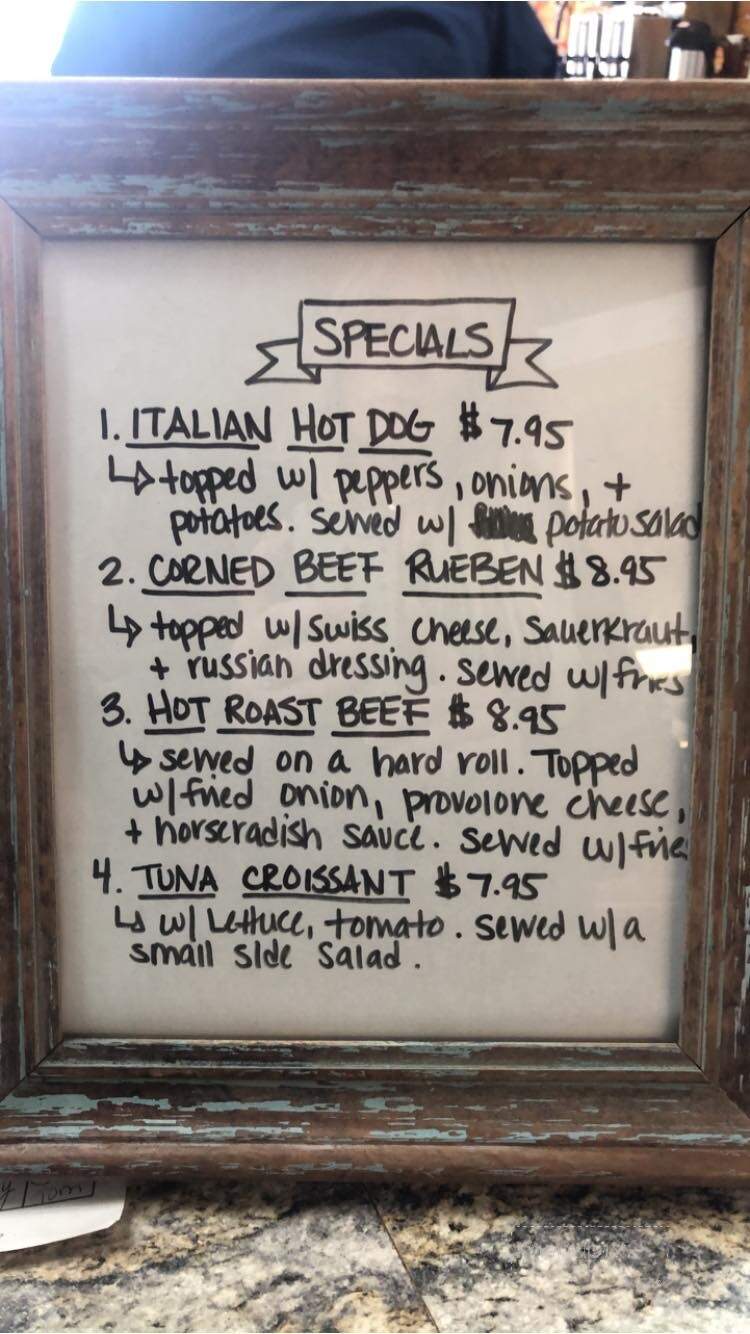 SPECIALS
1. ITALIAN HOT DOG $7.95
↳ topped w/ peppers, onions, +
potatoes. served w/ potato salad
2. CORNED BEEF RUEBEN $8.95
↳ topped w/ swiss cheese, sauerkraut,
+ russian dressing. served w/ fries
3. HOT ROAST BEEF $8.95
↳ served on a hard roll. Topped
w/ fried onion, provolone cheese,
+ horseradish sauce. served w/ frie
4. TUNA CROISSANT $7.95
↳ w/ Lettuce, tomato. served w/ a
small side salad.
Tom